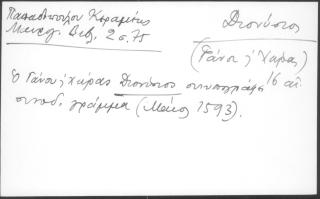 Παπαδοπούλου Κεραμέως
Μαυρογ. Βιβ. 2 σ. 75
Διονύσιος
(Γάνου & Χώρας)
Ὁ Γάνου & Χώρας Διονύσιος συνυπογράφει 16 αἰ.
συνοδ. γράμμα (Μάιος 1593).